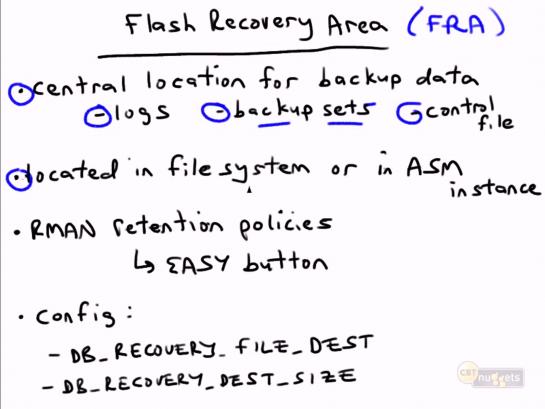 Flash Recovery Area (FRA)
• central location for backup data
- logs - backup sets - control file
• located in file system or in ASM instance
• RMAN retention policies
↳ EASY button
• Config:
- DB_RECOVERY_FILE_DEST
- DB_RECOVERY_DEST_SIZE
CBT nuggets